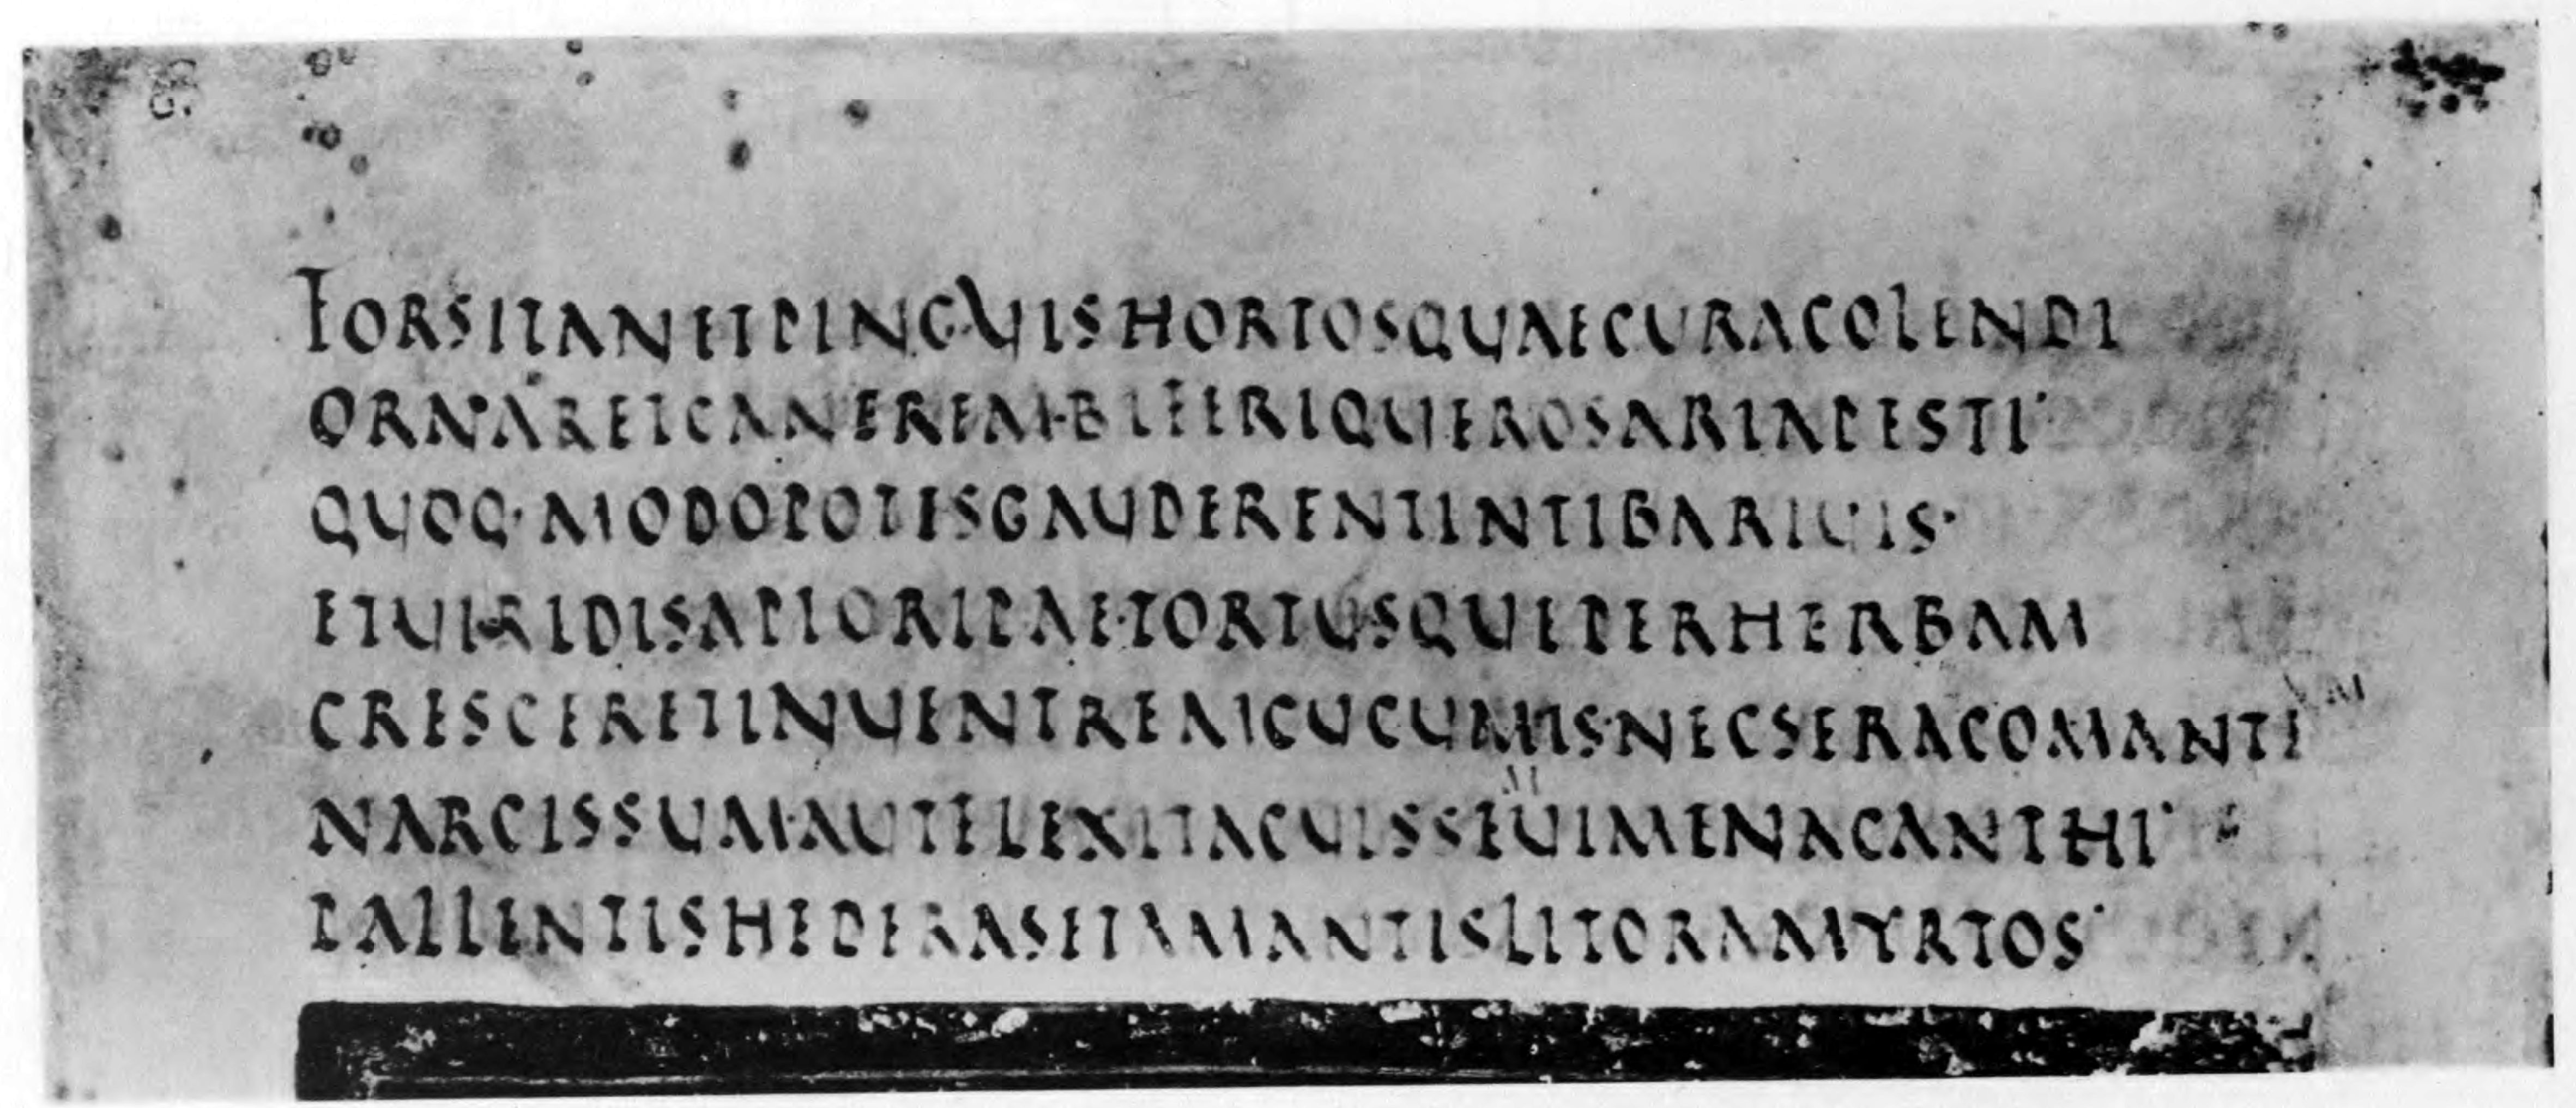 FORSITANETPINGUISHORTOSQUAECURACOLENDI
ORNARETCANEREM·BIFERIQUEROSARIAPESTI·
QUOQ·MODOPOTISGAUDERENTINTIBARIUIS·
ETUIRIDISAPIORIPAE·TORTUSQUEPERHERBAM
CRESCERETINUENTREMCUCUMIS·NECSERACOMANTI
NARCISSUM·AUTFLEXITACUISSEUIMENACANTHI·
PALLENTISHEDERASETAMANTISLITORAMYRTOS·